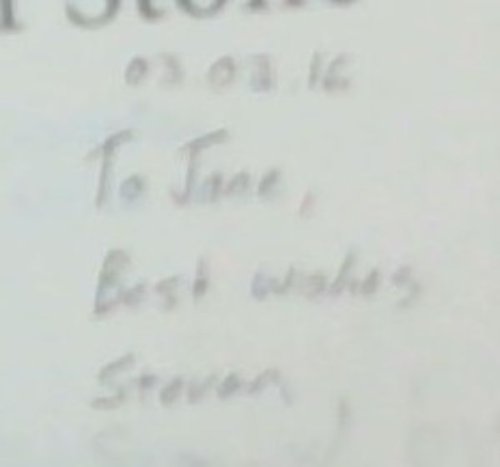 Stone
03 03 16
To Jane,
Best wishes
Steven